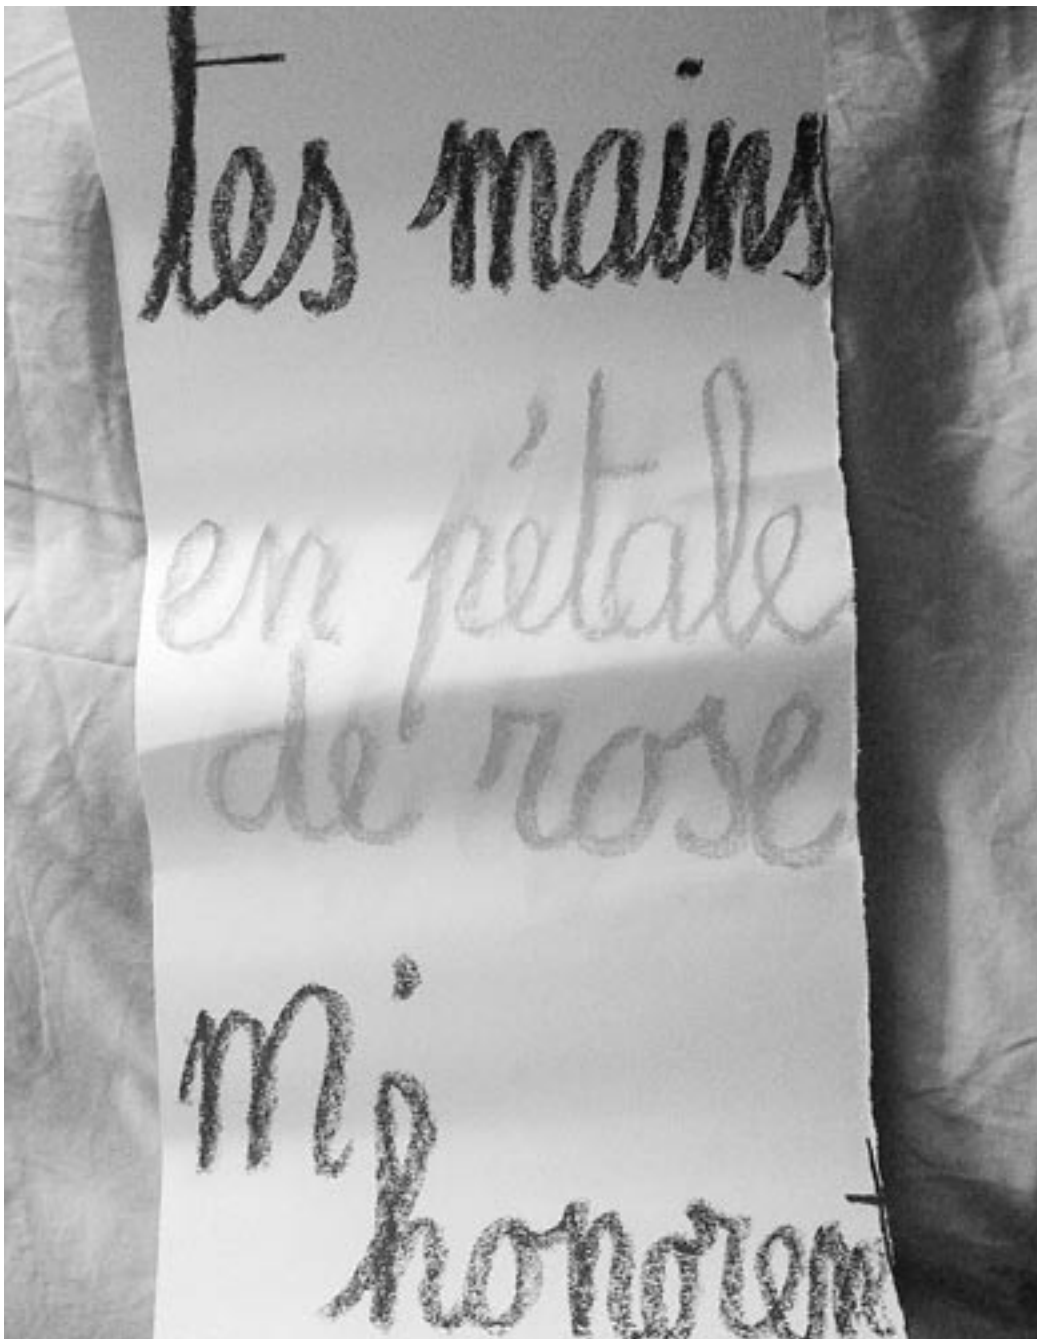 tes mains
en pétale
de rose
m'
honorent